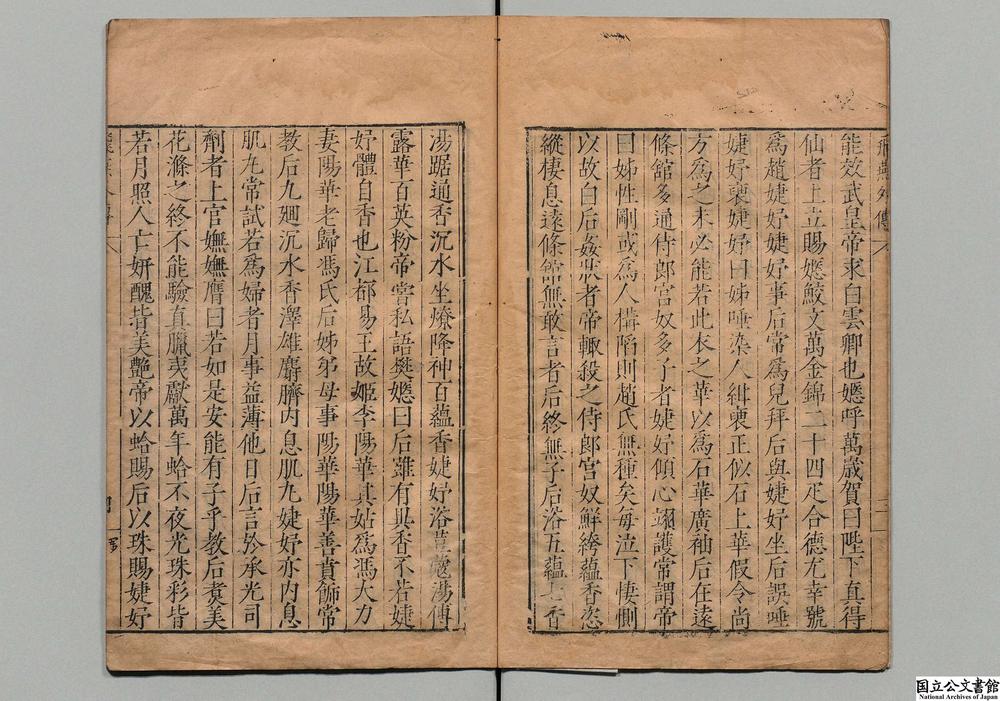 能效武皇帝求白雲卿也嬺呼萬歲賀曰陛下直得
仙者上立賜嬺鮫文萬金錦二十四疋合德尤幸號
爲趙婕妤婕妤事后常爲兒拜后與婕妤坐后誤唾
婕妤袖婕妤曰姊唾染人紺袖正似石上華假令尚
方爲之未必能若此衣之華以爲石華廣袖后在遠
條館多通侍郎宮奴多子者婕妤傾心翊護常謂帝
曰姊性剛或爲人構陷則趙氏無種矣每泣下悽惻
以故白后姦狀者帝輒殺之侍郎宮奴鮮絝蘊香恣
縱棲息遠條館無敢言者后終無子后浴五蘊七香
湯踞通香沉水坐燎降神百蘊香婕妤浴荳蔻湯傅
露華百英粉帝嘗私語樊嬺曰后雖有異香不若婕
妤體自香也江都易王故姬李陽華其姑爲馮大力
妻陽華老歸馮氏后姊弟母事陽華陽華善賁飾常
教后九廻沉水香澤雄麝臍内息肌丸婕妤亦内息
肌丸常試若爲婦者月事益薄他日后言於承光司
劑者上官嫵嫵膺曰若如是安能有子乎教后煑美
花滌之終不能驗真臘夷獻萬年蛤不夜光珠彩皆
若月照人亡妍醜皆美艷帝以蛤賜后以珠賜婕妤
国立公文書館
National Archives of Japan